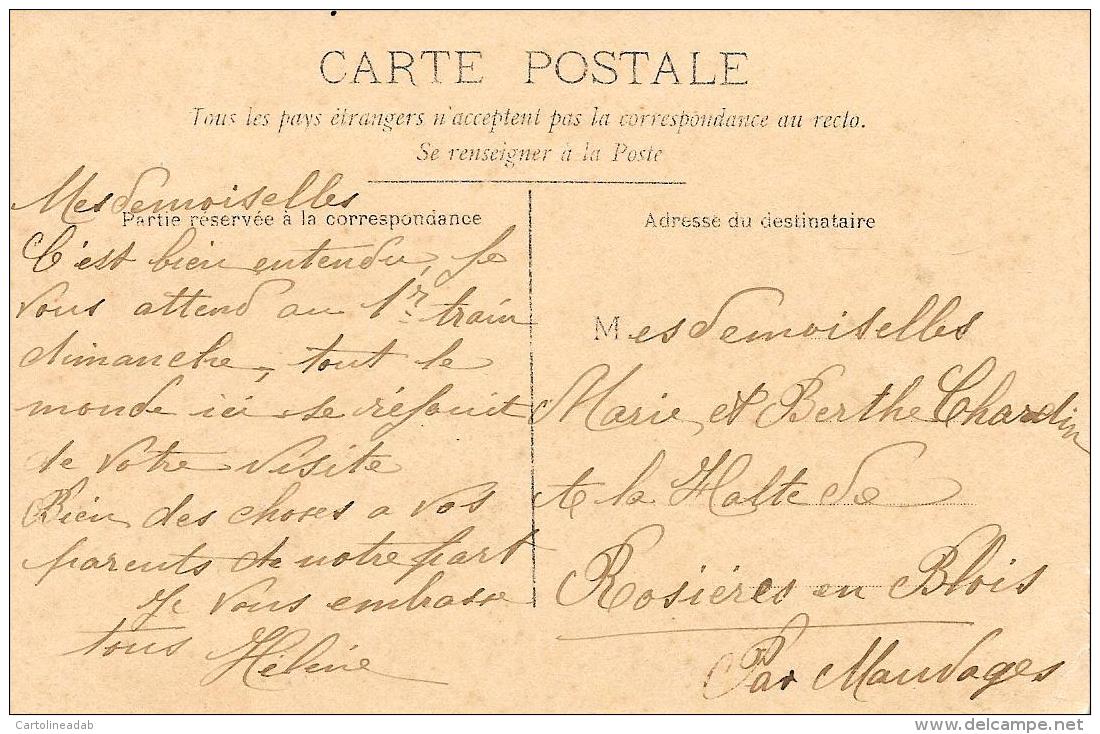 CARTE POSTALE
Tous les pays étrangers n'acceptent pas la correspondance au recto.
Se renseigner à la Poste
Partie réservée à la correspondance
Mesdemoiselles
C'est bien entendu, je
vous attend au 1r train
dimanche, tout le
monde ici se réjouit
de votre visite
Bien des choses a vos
parents de notre part
Je vous embrasse
tous Hélène
Adresse du destinataire
Mesdemoiselles
Marie et Berthe Chardin
de la Halte de
Rosiéres en Blois
Par Mauvages
Cartolineadab
www.delcampe.net